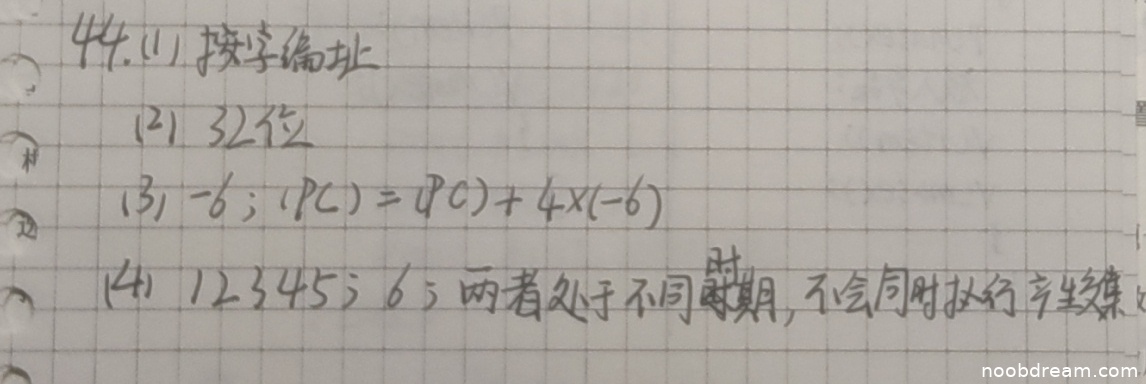 44.(1) 按字编址
(2) 32位
(3) -6; (PC) = (PC) + 4×(-6)
(4) 12345; 6; 两者处于不同时期, 不会同时执行产生交集
noobdream.com